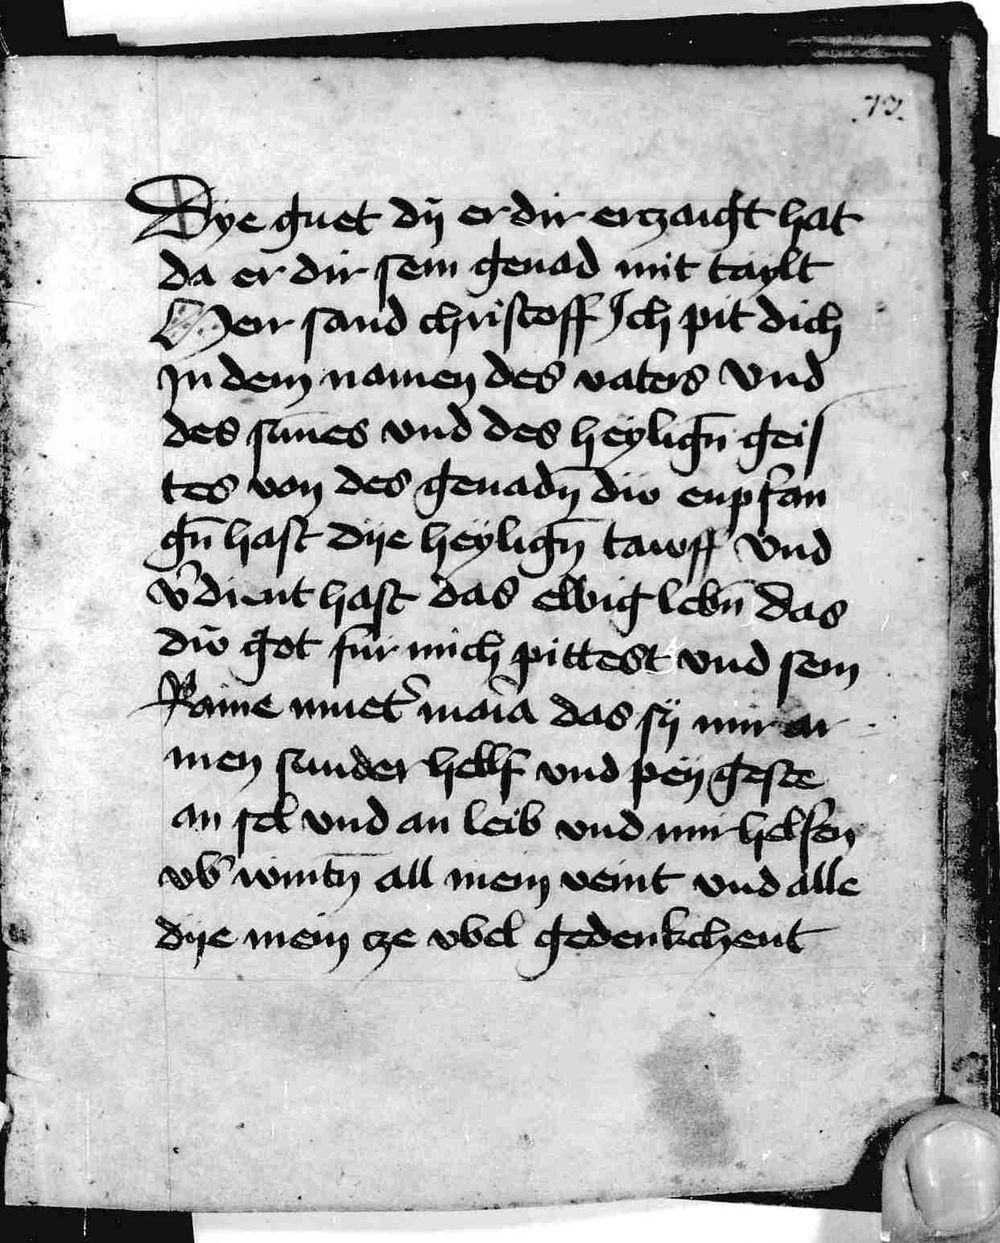 73.
Dye guet dÿ er dir erczaigt hat
da er dir sein genad mit taylt
Herr sand christoff Ich pit dich
In dem namen des vaters vnd
des sunes vnd des heÿlign̄ geis
tes von des genadn̄ dw enpfan
gn̄ hast dÿe heÿlign̄ tawff vnd
v̾dient hast das ewig lebn̄ das
dw got fur mich pittest vnd sein
Raine muet̾ maria das sÿ mir ar
men sunder helff vnd peÿ geste
an sel vnd an leib vnd mir helfen
vb̾wintn̄ all mein veint vnd alle
dÿe mein cze vbel gedenkchent